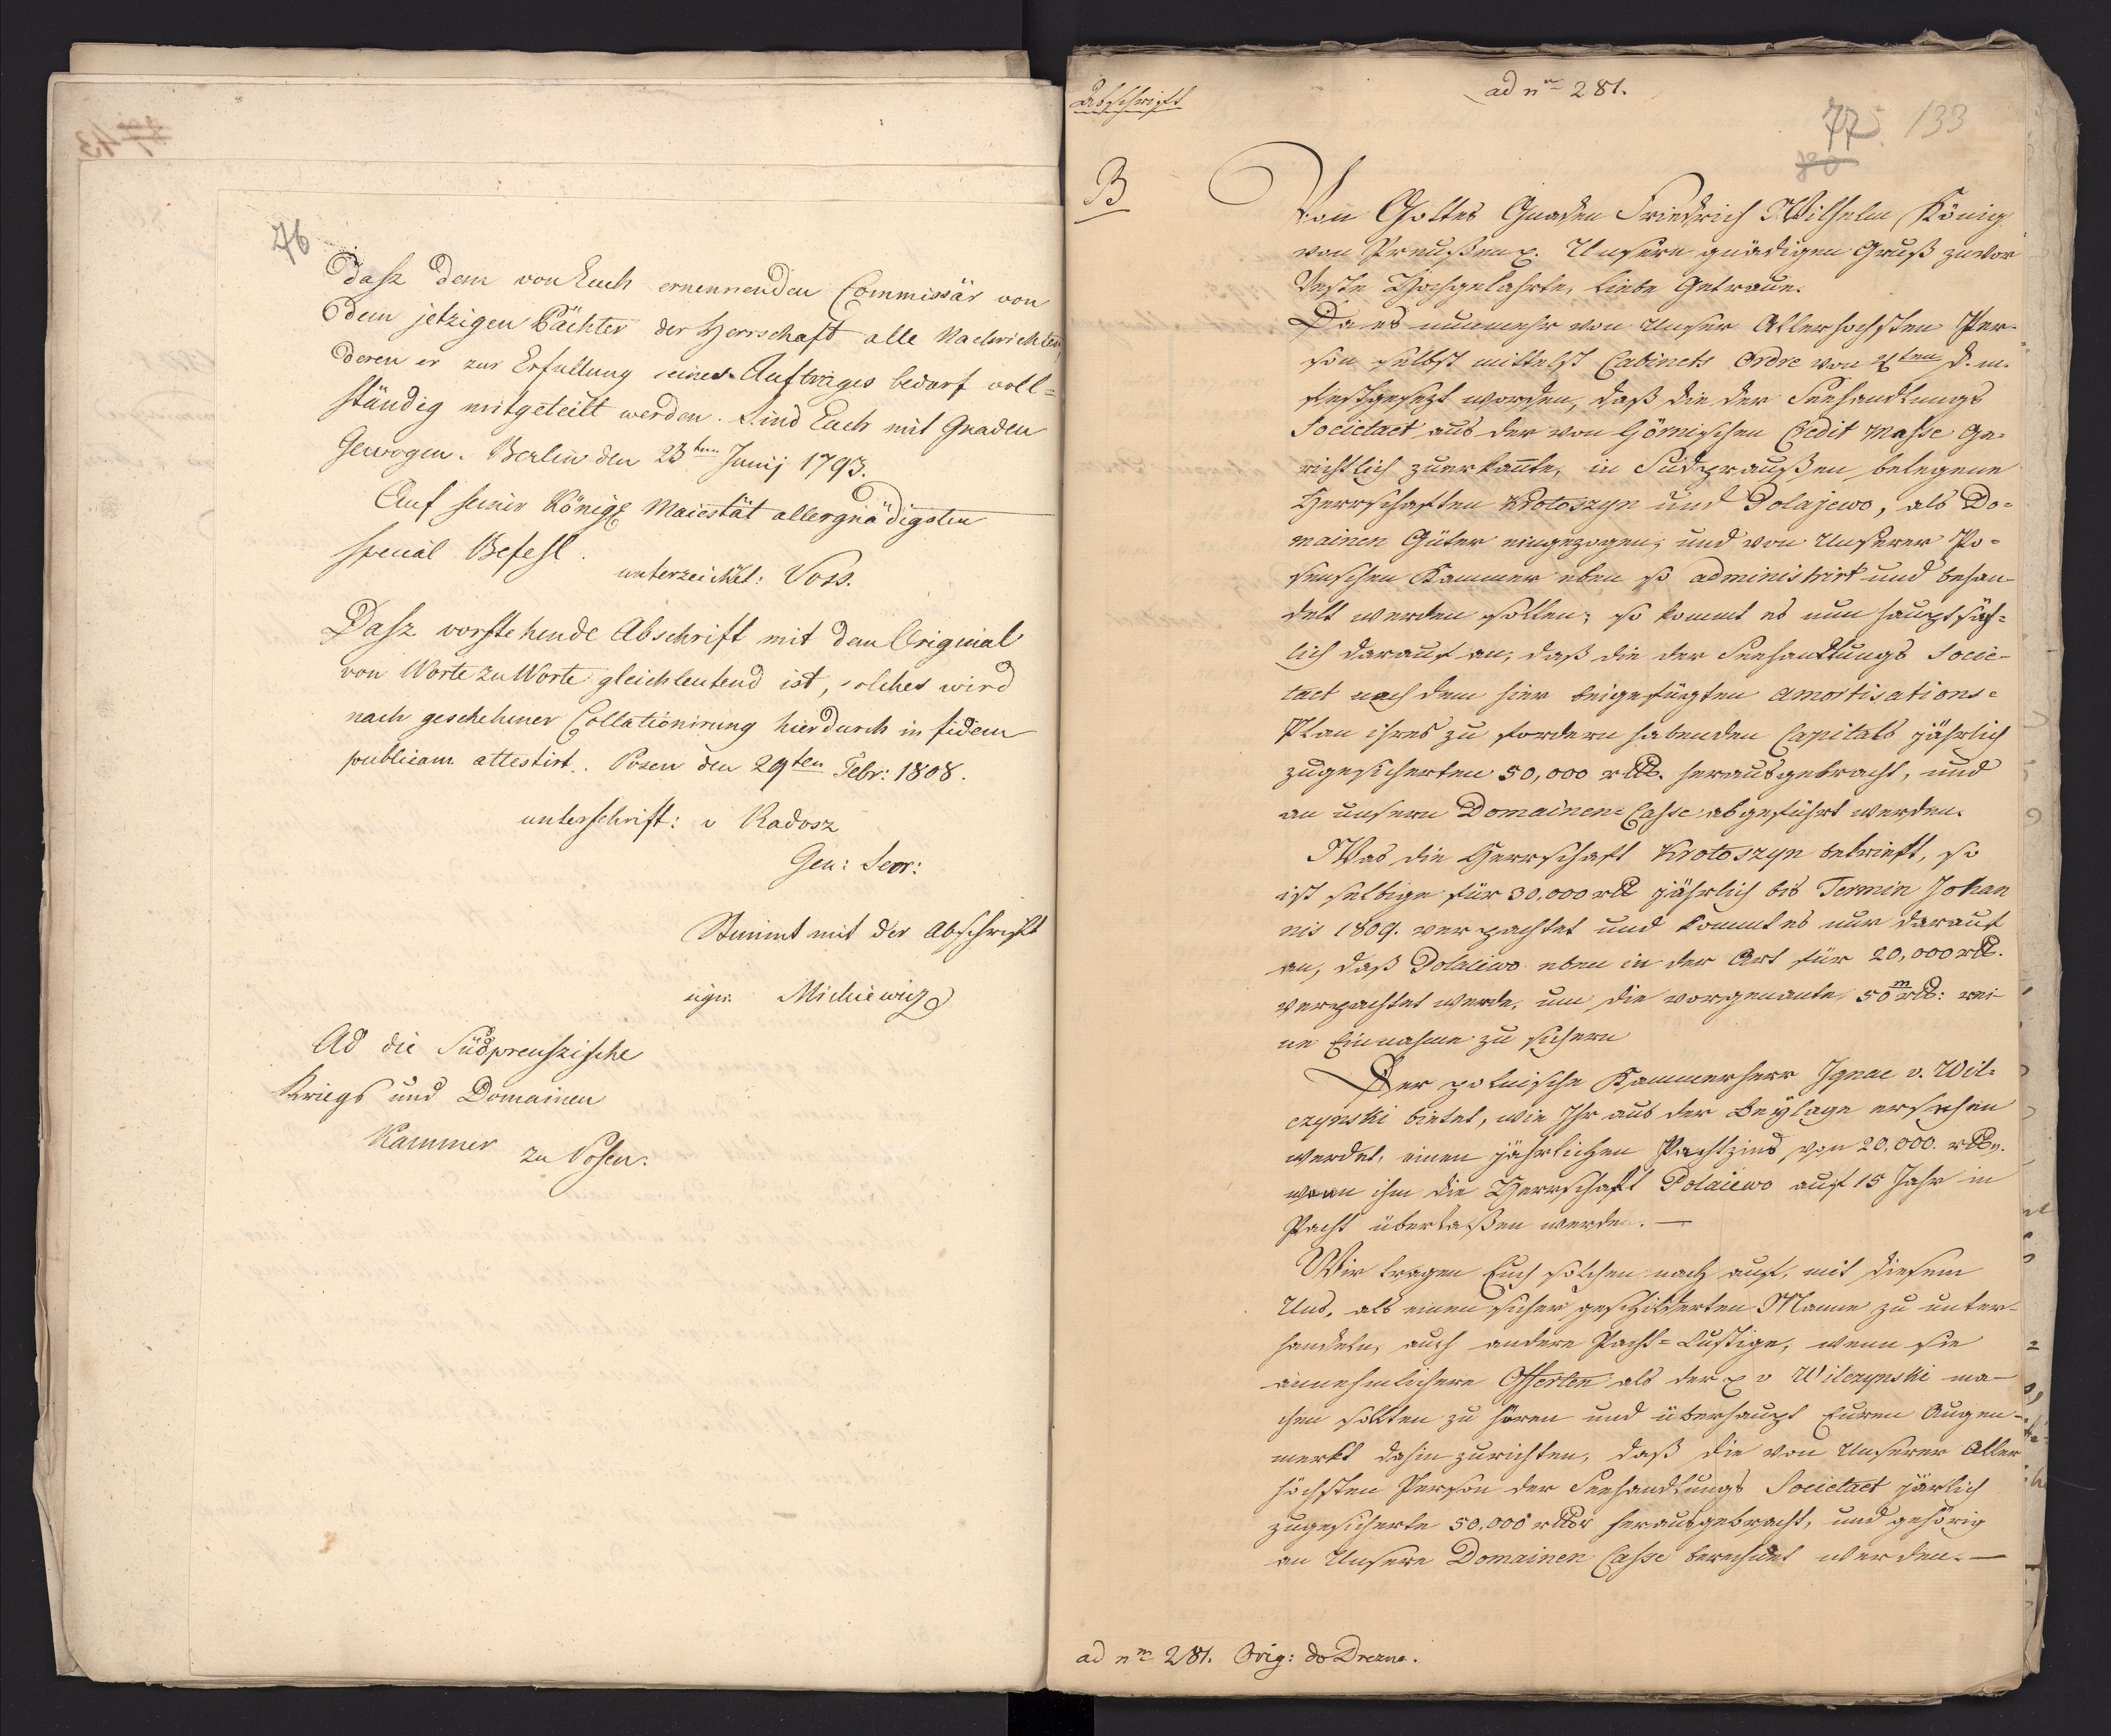 76
dasz dem von Euch ernennenden Commissär von
dem jetzigen Pächter der Herrschaft alle Nachrichten
deren er zur Erfüllung seines Auftrages bedarf voll=
ständig mitgeteilt werden. Sind Euch mit Gnaden
Gewogen. Berlin den 23ten Junij 1793.
Auf seiner Königl Maiestät allergnädigsten
special Befehl.
unterzeicht: Voss.
Dasz vorstehende Abschrift mit dem Original
von Worte zu Worte gleichleutend ist, solches wird
nach geschehener Collationirung hierdurch in fidem
publicam attestirt. Posen den 29ten Febr: 1808.
unterschrift: v Radosz
Gen: Secr:
Stimmt mit der Abschrift
Mickiewicz
Ad die Südpreuszische
Kriegs und Domainen
Kammer zu Posen.
Abschrift
ad nm 281.
77. 133
80
B
Von Gottes Gnaden Friedrich Wilhelm König
von Preußen p. Unsern gnädigen Gruß zuvor
Veste Hochgelahrte, liebe Getraue.
Da es nunmehr von Unser Allerhochsten Per-
son selbst mittelst Cabinets Ordre von 4ten d. m.
festgesezt worden, daß die der Seehandlungs
Societaet aus der von Görnischen Credit Masse ge-
richtlich zuerkante, in Südpraußen belegene
Herrschaften Krotoszyn und Polajewo, als Do-
mainen Güter eingezogen, und von Unserer Po-
senschen Kammer eben so administrirt und behan-
delt werden sollen; so kommt es nun hauptsäch=
lich darauf an, daß die der Seehandlungs Socie-
taet nach dem hier beigefügten Amortisations=
Plan ihres zu fordern habenden Capitals jährlich
zugesicherten 50,000 rtlr. herausgebracht, und
an unsern Domainen=Casse abgeführt werden.
Was die Herrschaft Krotoszyn betrieft, so
ist selbige für 30,000 rtl jährlich bis Termin Johan
nis 1809. verpachtet und kommt es nur darauf
an, daß Polaiewo eben in der Art für 20,000 rtl.
verpachtet werde, um die vorgenante 50m rtl: rei-
ne Einnahme zu sichern
Der polnische Kammerherr Ignac v. Wil-
czynski bietet, wie Ihr aus der Beylage ersehen
werdet, einen jährlichen Pachtzins von 20,000. rtlr.
wenn ihm die Herrschaft Polaiewo auf 15 Jahr in
Pacht überlaßen werden. —
Wir tragen Euch solchem nach auf, mit diesem
Uns, als einen sicher geschilderten Manne zu unter-
handeln, auch andere Pacht=Lustige, wenn sie
annehmlichere Offerten als der p v Wilczynski ma-
chen sollten zu hören und überhaupt Euren Augen-
merkt dahin zurichten, daß die von Unserer Aller
höchsten Person der Seehandlungs Societaet järlich
zugesicherte 50,000 rtlr herausgebracht, und gehörig
an Unsere Domainen Casse berechnet werden. —
ad nm 281. Orig: do Drezna.